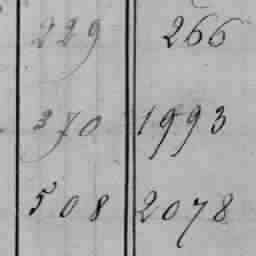 229 266
370 1993
508 2078